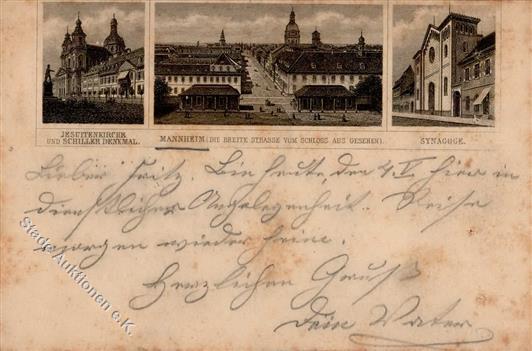 JESUITENKIRCHE
UND SCHILLER DENKMAL.
MANNHEIM (DIE BREITE STRASSE VOM SCHLOSS AUS GESEHEN).
SYNAGOGE.
Lieber Fritz. Bin heute den 4. V hier in
dienstlicher Angelegenheit. Reise
morgen wieder heim.
Herzlichen Gruß
Dein Vater
Stade Auktionen e.K.